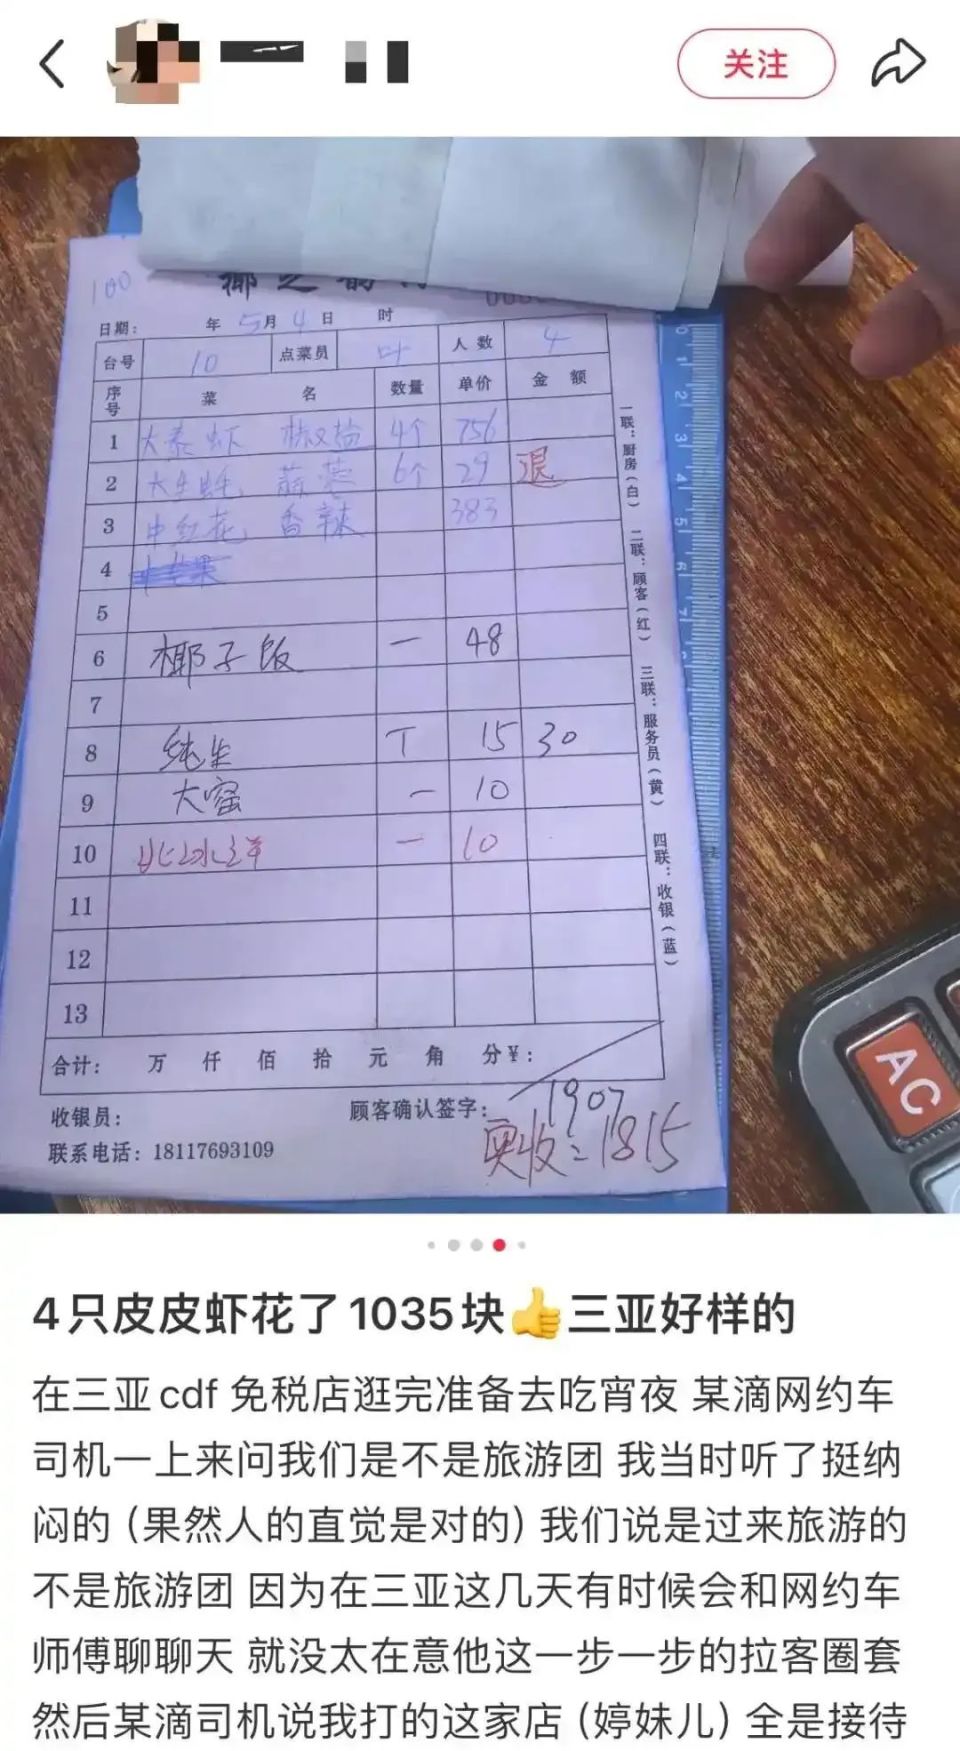 关注
100
椰之韵
日期: 年 5月 4日 时
台号 10 点菜员 叶 人数 4
序号 菜名 数量 单价 金额
1 大泰虾 椒盐 4个 756
2 大生蚝 蒜蓉 6个 29 退
3 中红花 香辣 383
4
5
6 椰子饭 一 48
7
8 纯生 T 15 30
9 大窑 一 10
10 北冰洋 一 10
11
12
13
合计: 万 仟 佰 拾 元 角 分¥:
收银员: 顾客确认签字: 1907
联系电话: 18117693109 实收=1815
一联:厨房(白) 二联:顾客(红) 三联:服务员(黄) 四联:收银(蓝)
0 1 2 3 4 5 6 7
AC
4只皮皮虾花了1035块👍三亚好样的
在三亚cdf 免税店逛完准备去吃宵夜 某滴网约车
司机一上来问我们是不是旅游团 我当时听了挺纳
闷的(果然人的直觉是对的) 我们说是过来旅游的
不是旅游团 因为在三亚这几天有时候会和网约车
师傅聊聊天 就没太在意他这一步一步的拉客圈套
然后某滴司机说我打的这家店(婷妹儿) 全是接待